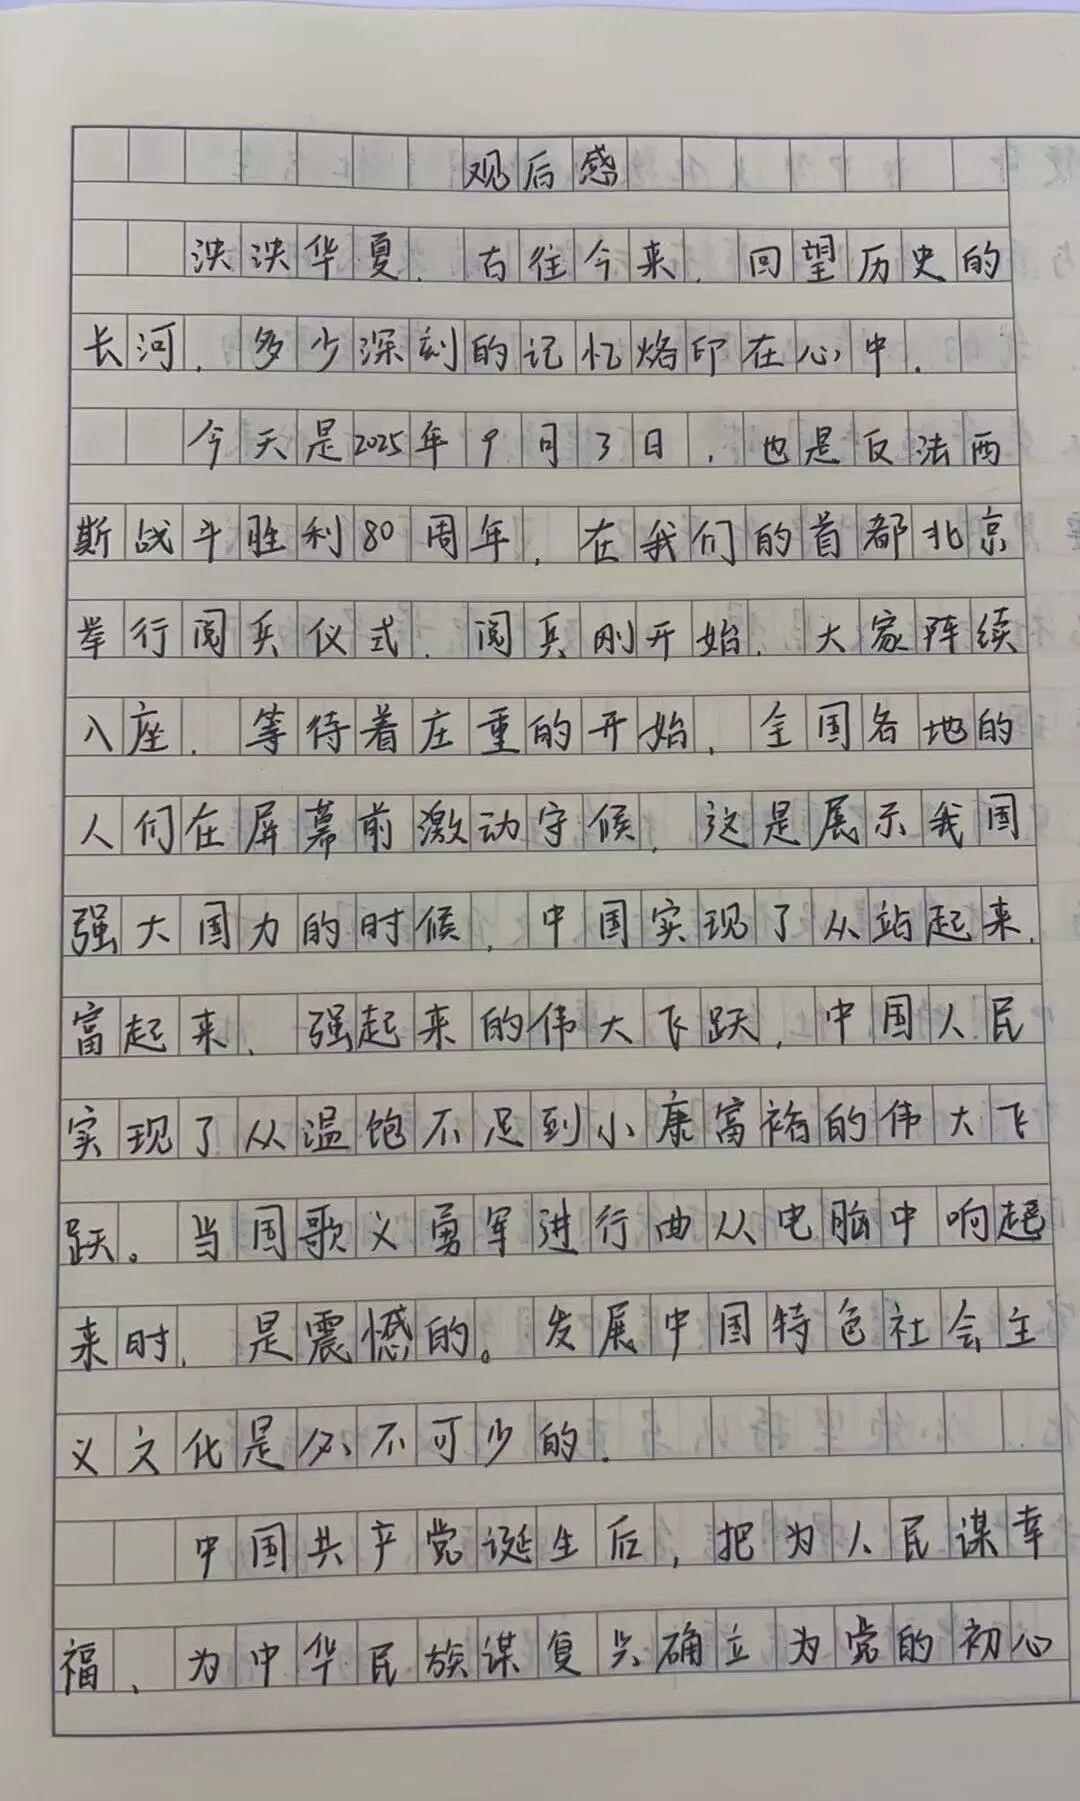 观后感
泱泱华夏，古往今来，回望历史的
长河，多少深刻的记忆烙印在心中.
今天是2025年9月3日，也是反法西
斯战斗胜利80周年，在我们的首都北京
举行阅兵仪式.阅兵刚开始，大家阵续
入座，等待着庄重的开始，全国各地的
人们在屏幕前激动守候，这是展示我国
强大国力的时候，中国实现了从站起来，
富起来、强起来的伟大飞跃，中国人民
实现了从温饱不足到小康富裕的伟大飞
跃。当国歌义勇军进行曲从电脑中响起
来时，是震憾的。发展中国特色社会主
义文化是必不可少的.
中国共产党诞生后，把为人民谋幸
福、为中华民族谋复兴确立为党的初心